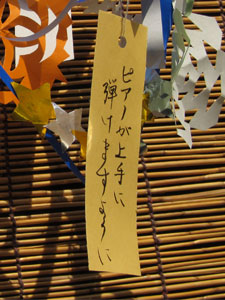 ピアノが上手に
弾けますように